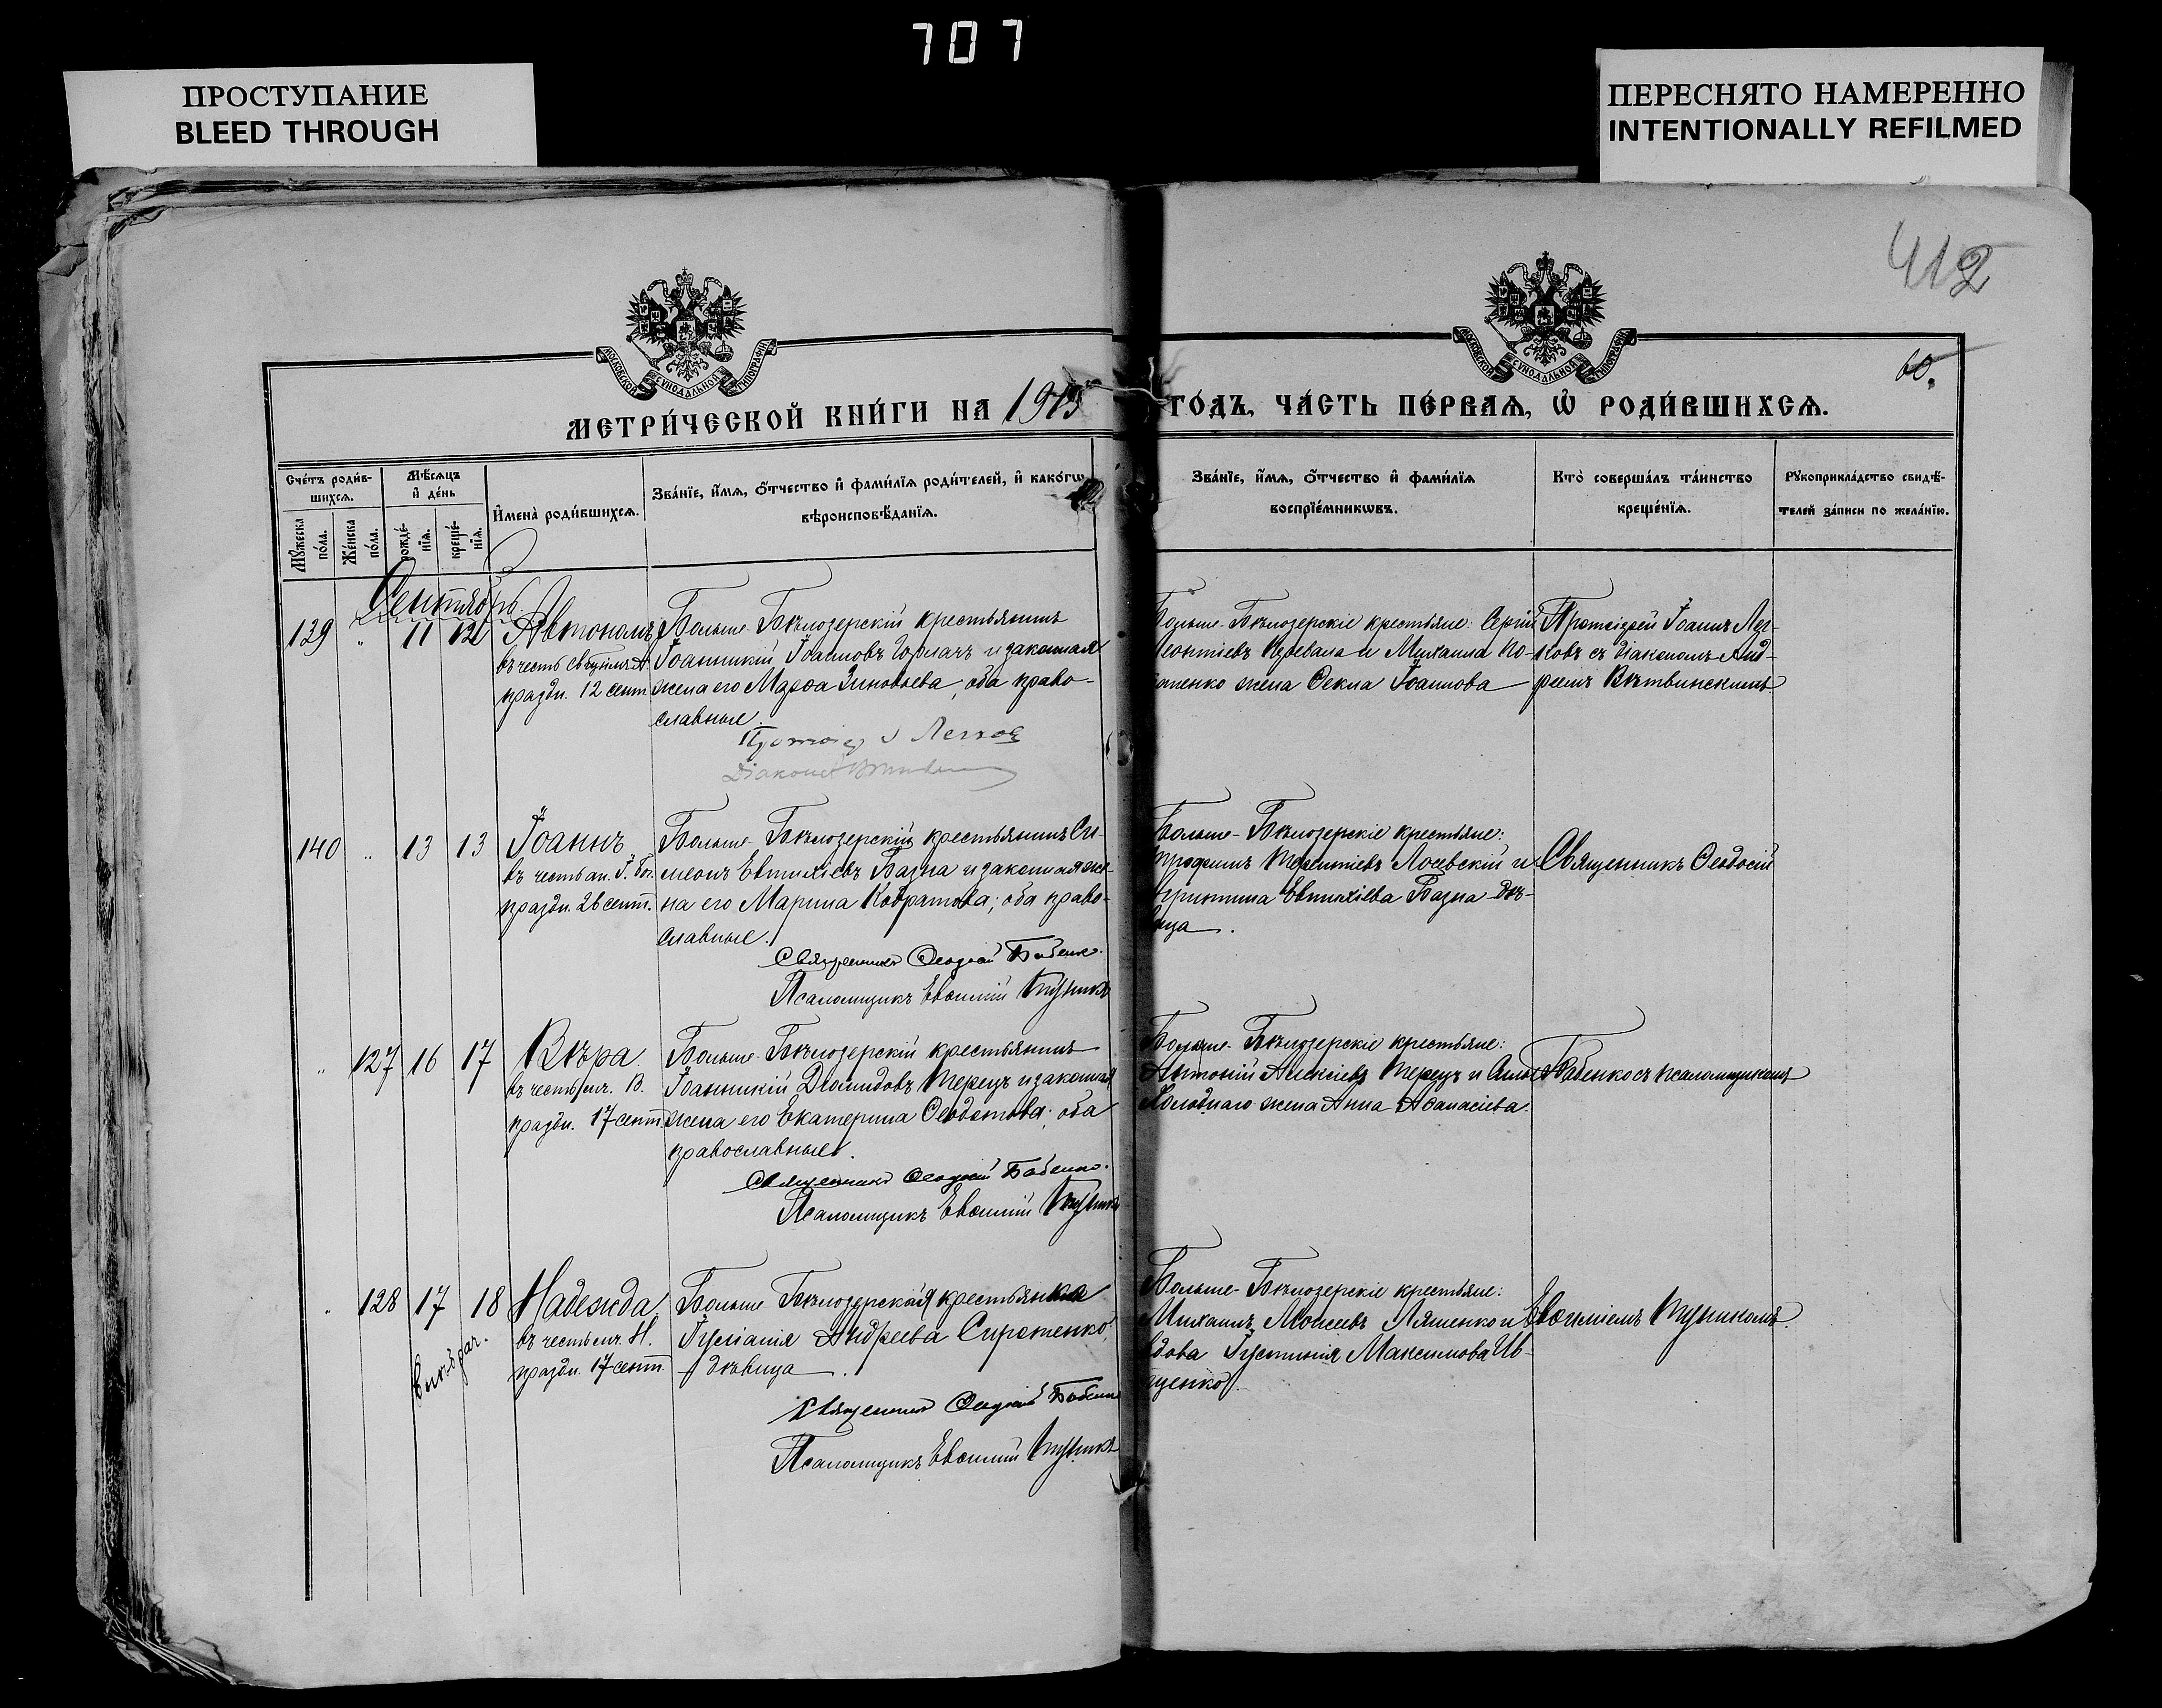 707
ПРОСТУПАНИЕ
BLEED THROUGH
ПЕРЕСНЯТО НАМЕРЕННО
INTENTIONALLY REFILMED
412
60.
МОСКОВСКОЙ СѴНОДАЛЬНОЙ ТИПОГРАФІИ
МОСКОВСКОЙ СѴНОДАЛЬНОЙ ТИПОГРАФІИ
МЕТРИ́ЧЕСКОЙ КНИ́ГИ НА 1915
ГО́ДЪ, ЧА́СТЬ ПЕ́РВАѦ, Ѡ҆ РОДИ́ВШИХСѦ.
Сче́тъ роди́в-
шихсѧ.
Мꙋ́жеска по́ла.
Же́нска по́ла.
Мѣ́сѧцъ
и҆ де́нь
рожде́-
нїѧ.
креще́-
нїѧ.
И҆мена̀ роди́вшихсѧ.
Зва́нїе, и҆́мѧ, ѻ҆́тчество и҆ фами́лїѧ роди́телей, и҆ како́гѡ
вѣроисповѣ́данїѧ.
Зва́нїе, и҆́мѧ, ѻ҆́тчество и҆ фами́лїѧ
воспрїе́мникѡвъ.
Кто̀ соверша́лъ та́инство
креще́нїѧ.
Рꙋкоприкла́дство свидѣ́-
телей за́писи по жела́нїю.
Сентябрь.
139 " 11 12 Автономъ
въ честь свщмч. А.
праздн. 12 сент.
Больше-Бѣлозерскій крестьянинъ
Іоанникій Іоанновъ и законная
жена его Марѳа Зиновьева, оба право-
славные.
Протоіер. І Легков
Діаконъ
Больше-Бѣлозерскіе крестьяне: Сергій
Леонтіевъ Перевала и Михаила Ко-
жена Ѳекла Іоаннова
Протоіерей Іоаннъ Лег-
ковъ съ діакономъ Анд-
реемъ Вѣтвинскимъ
140 " 13 13 Іоаннъ
въ честь ап. І. Бог.
праздн. 26 сент.
Больше-Бѣлозерскій крестьянинъ Си-
меонъ Евтихіевъ Вазна и законная же-
на его Марина Кодратова; оба право-
славные.
Священникъ Ѳеодосій Бабенко.
Псаломщикъ Евѳимій
Больше-Бѣлозерскіе крестьяне:
Трофимъ Терентіевъ Лосевскій и
Евтихіева Вазна дѣ-
вица.
Священникъ Ѳеодосій
" 127 16 17 Вѣра
въ честь мч. В.
праздн. 17 сент.
Больше-Бѣлозерскій крестьянинъ
Іоанникій Діомидовъ Терецъ и законная
жена его Екатерина Ѳеодотова; оба
православные.
Священникъ Ѳеодосій Бабенко.
Псаломщикъ Евѳимій
Больше-Бѣлозерскіе крестьяне:
Антоній Алексіевъ Терецъ и
Холоднаго жена Анна Аѳанасіева.
Бабенко съ псаломщикомъ
" 128 17 18 Надежда
внѣбрач.
въ честь мч. Н.
праздн. 17 сент.
Больше-Бѣлозерская крестьянка
Іуліанія Андреева Сиротенко,
дѣвица.
Священникъ Ѳеодосій Бабенко
Псаломщикъ Евѳимій
Больше-Бѣлозерскіе крестьяне:
Михаилъ Моисеевъ Ляшенко и
вдова Іустинія Максимова Ив-
щенко.
Евѳиміемъ